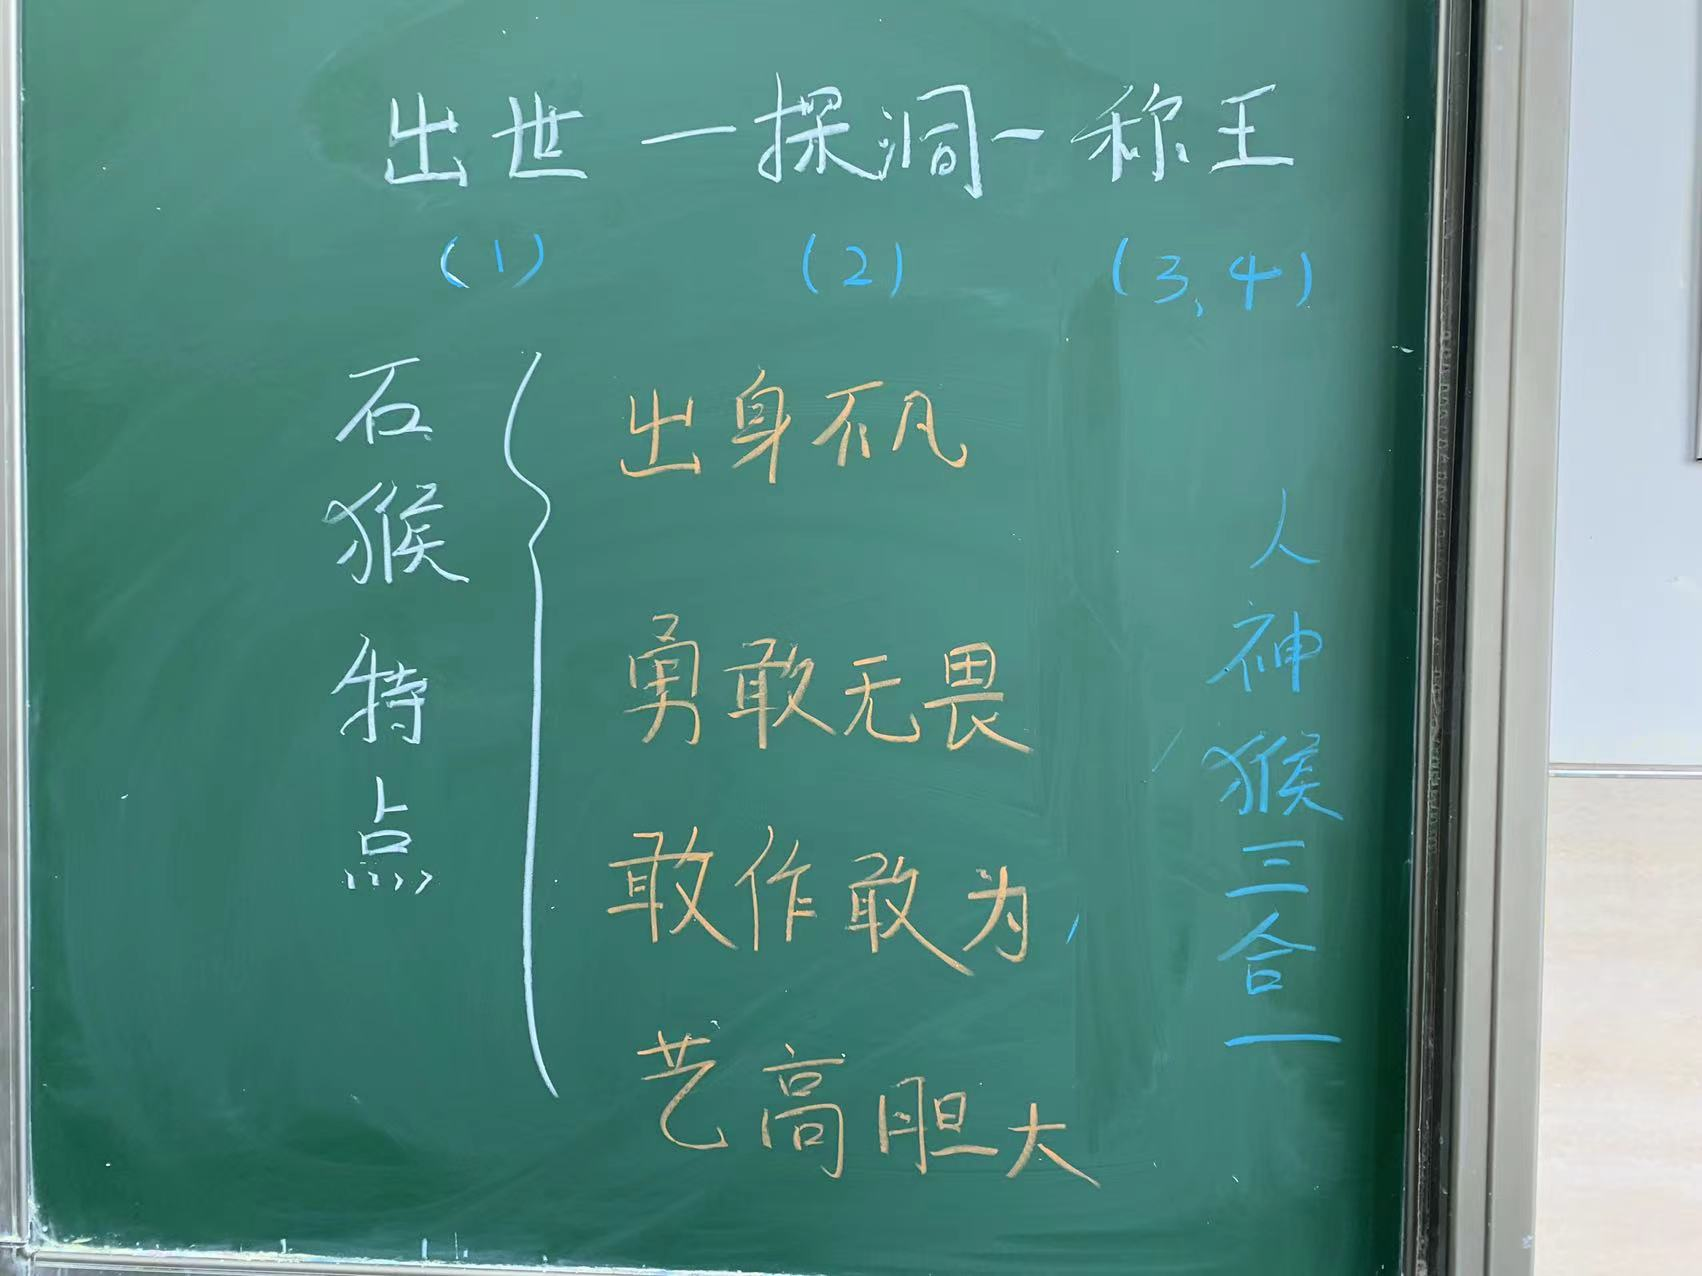 出世一探洞一称王
(1) (2) (3、4)
石猴特点
出身不凡
勇敢无畏
敢作敢为
艺高胆大
人神猴三合一